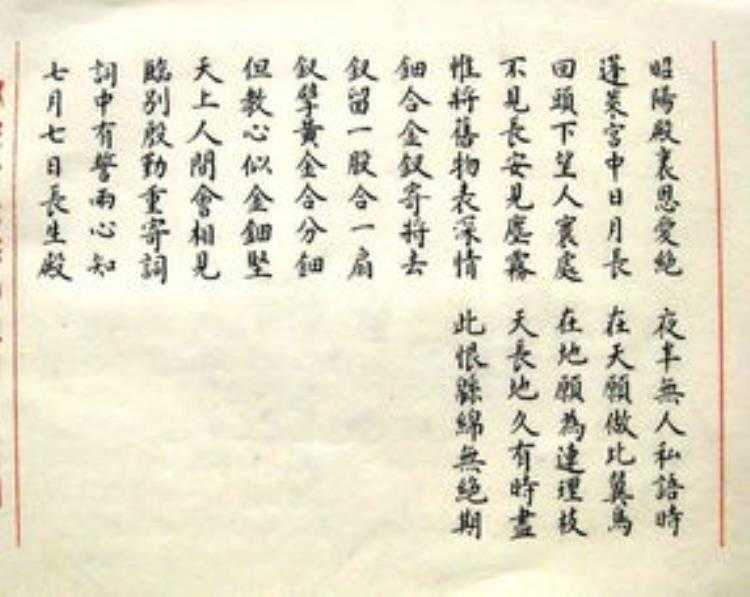 昭陽殿裏恩愛絕
蓬萊宮中日月長
回頭下望人寰處
不見長安見塵霧
惟將舊物表深情
鈿合金釵寄將去
釵留一股合一扇
釵擘黃金合分鈿
但教心似金鈿堅
天上人間會相見
臨別殷勤重寄詞
詞中有誓兩心知
七月七日長生殿
夜半無人私語時
在天願做比翼鳥
在地願為連理枝
天長地久有時盡
此恨緜綿無絕期